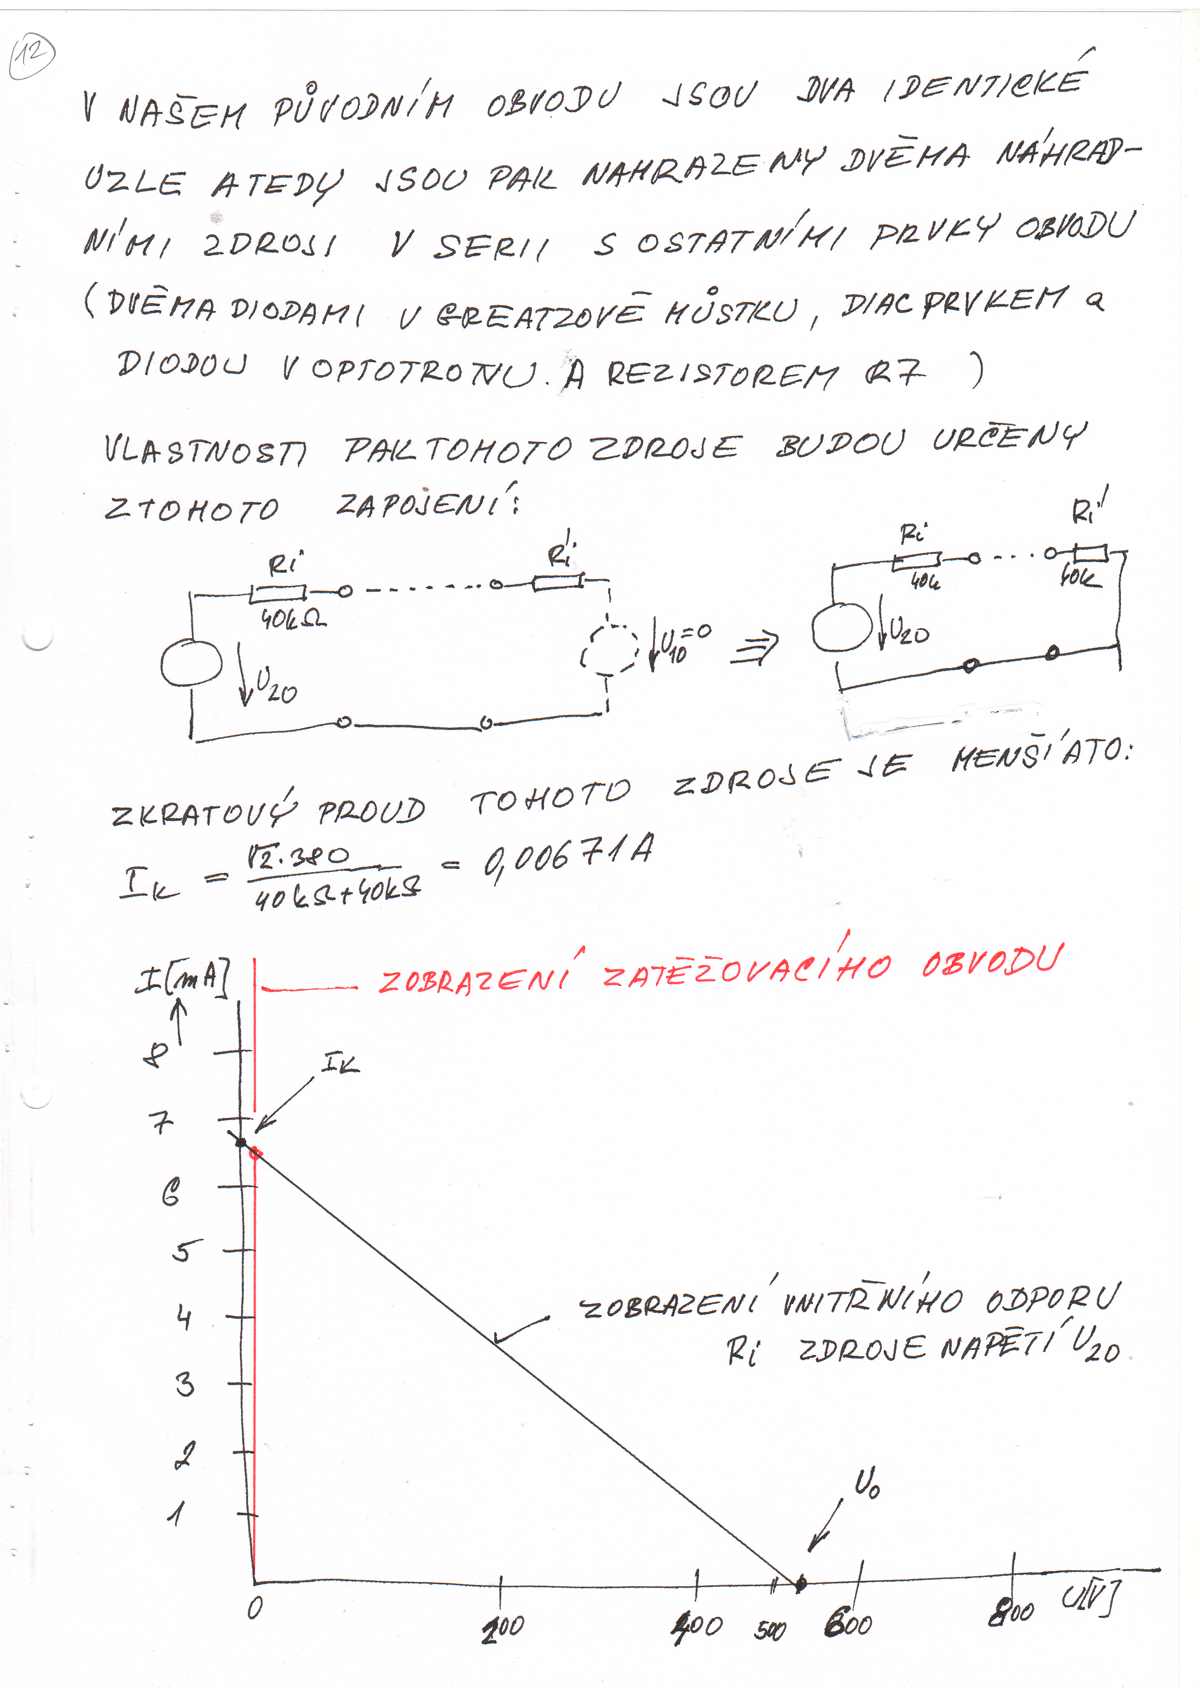 12
V NAŠEM PŮVODNÍM OBVODU JSOU DVA IDENTICKÉ
UZLE A TEDY JSOU PAK NAHRAZENY DVĚMA NÁHRAD-
NÍMI ZDROJI V SERII S OSTATNÍMI PRVKY OBVODU
(DVĚMA DIODAMI V GREATZOVĚ MŮSTKU, DIAC PRVKEM a
DIODOU V OPTOTRONU. A REZISTOREM R7 )
VLASTNOSTI PAK TOHOTO ZDROJE BUDOU URČENY
Z TOHOTO ZAPOJENÍ:
Ri Ri' Ri Ri'
40kΩ 40k 40k
U20 U10=0 ⇒ U20
ZKRATOVÝ PROUD TOHOTO ZDROJE JE MENŠÍ A TO:
IK = √2·380 / 40kΩ+40kΩ = 0,00671A
I[mA] ZOBRAZENÍ ZATĚŽOVACÍHO OBVODU
8
IK
7
6
5
4
ZOBRAZENÍ VNITŘNÍHO ODPORU
Ri ZDROJE NAPĚTÍ U20
3
2
1
U0
0 200 400 500 600 800 U[V]